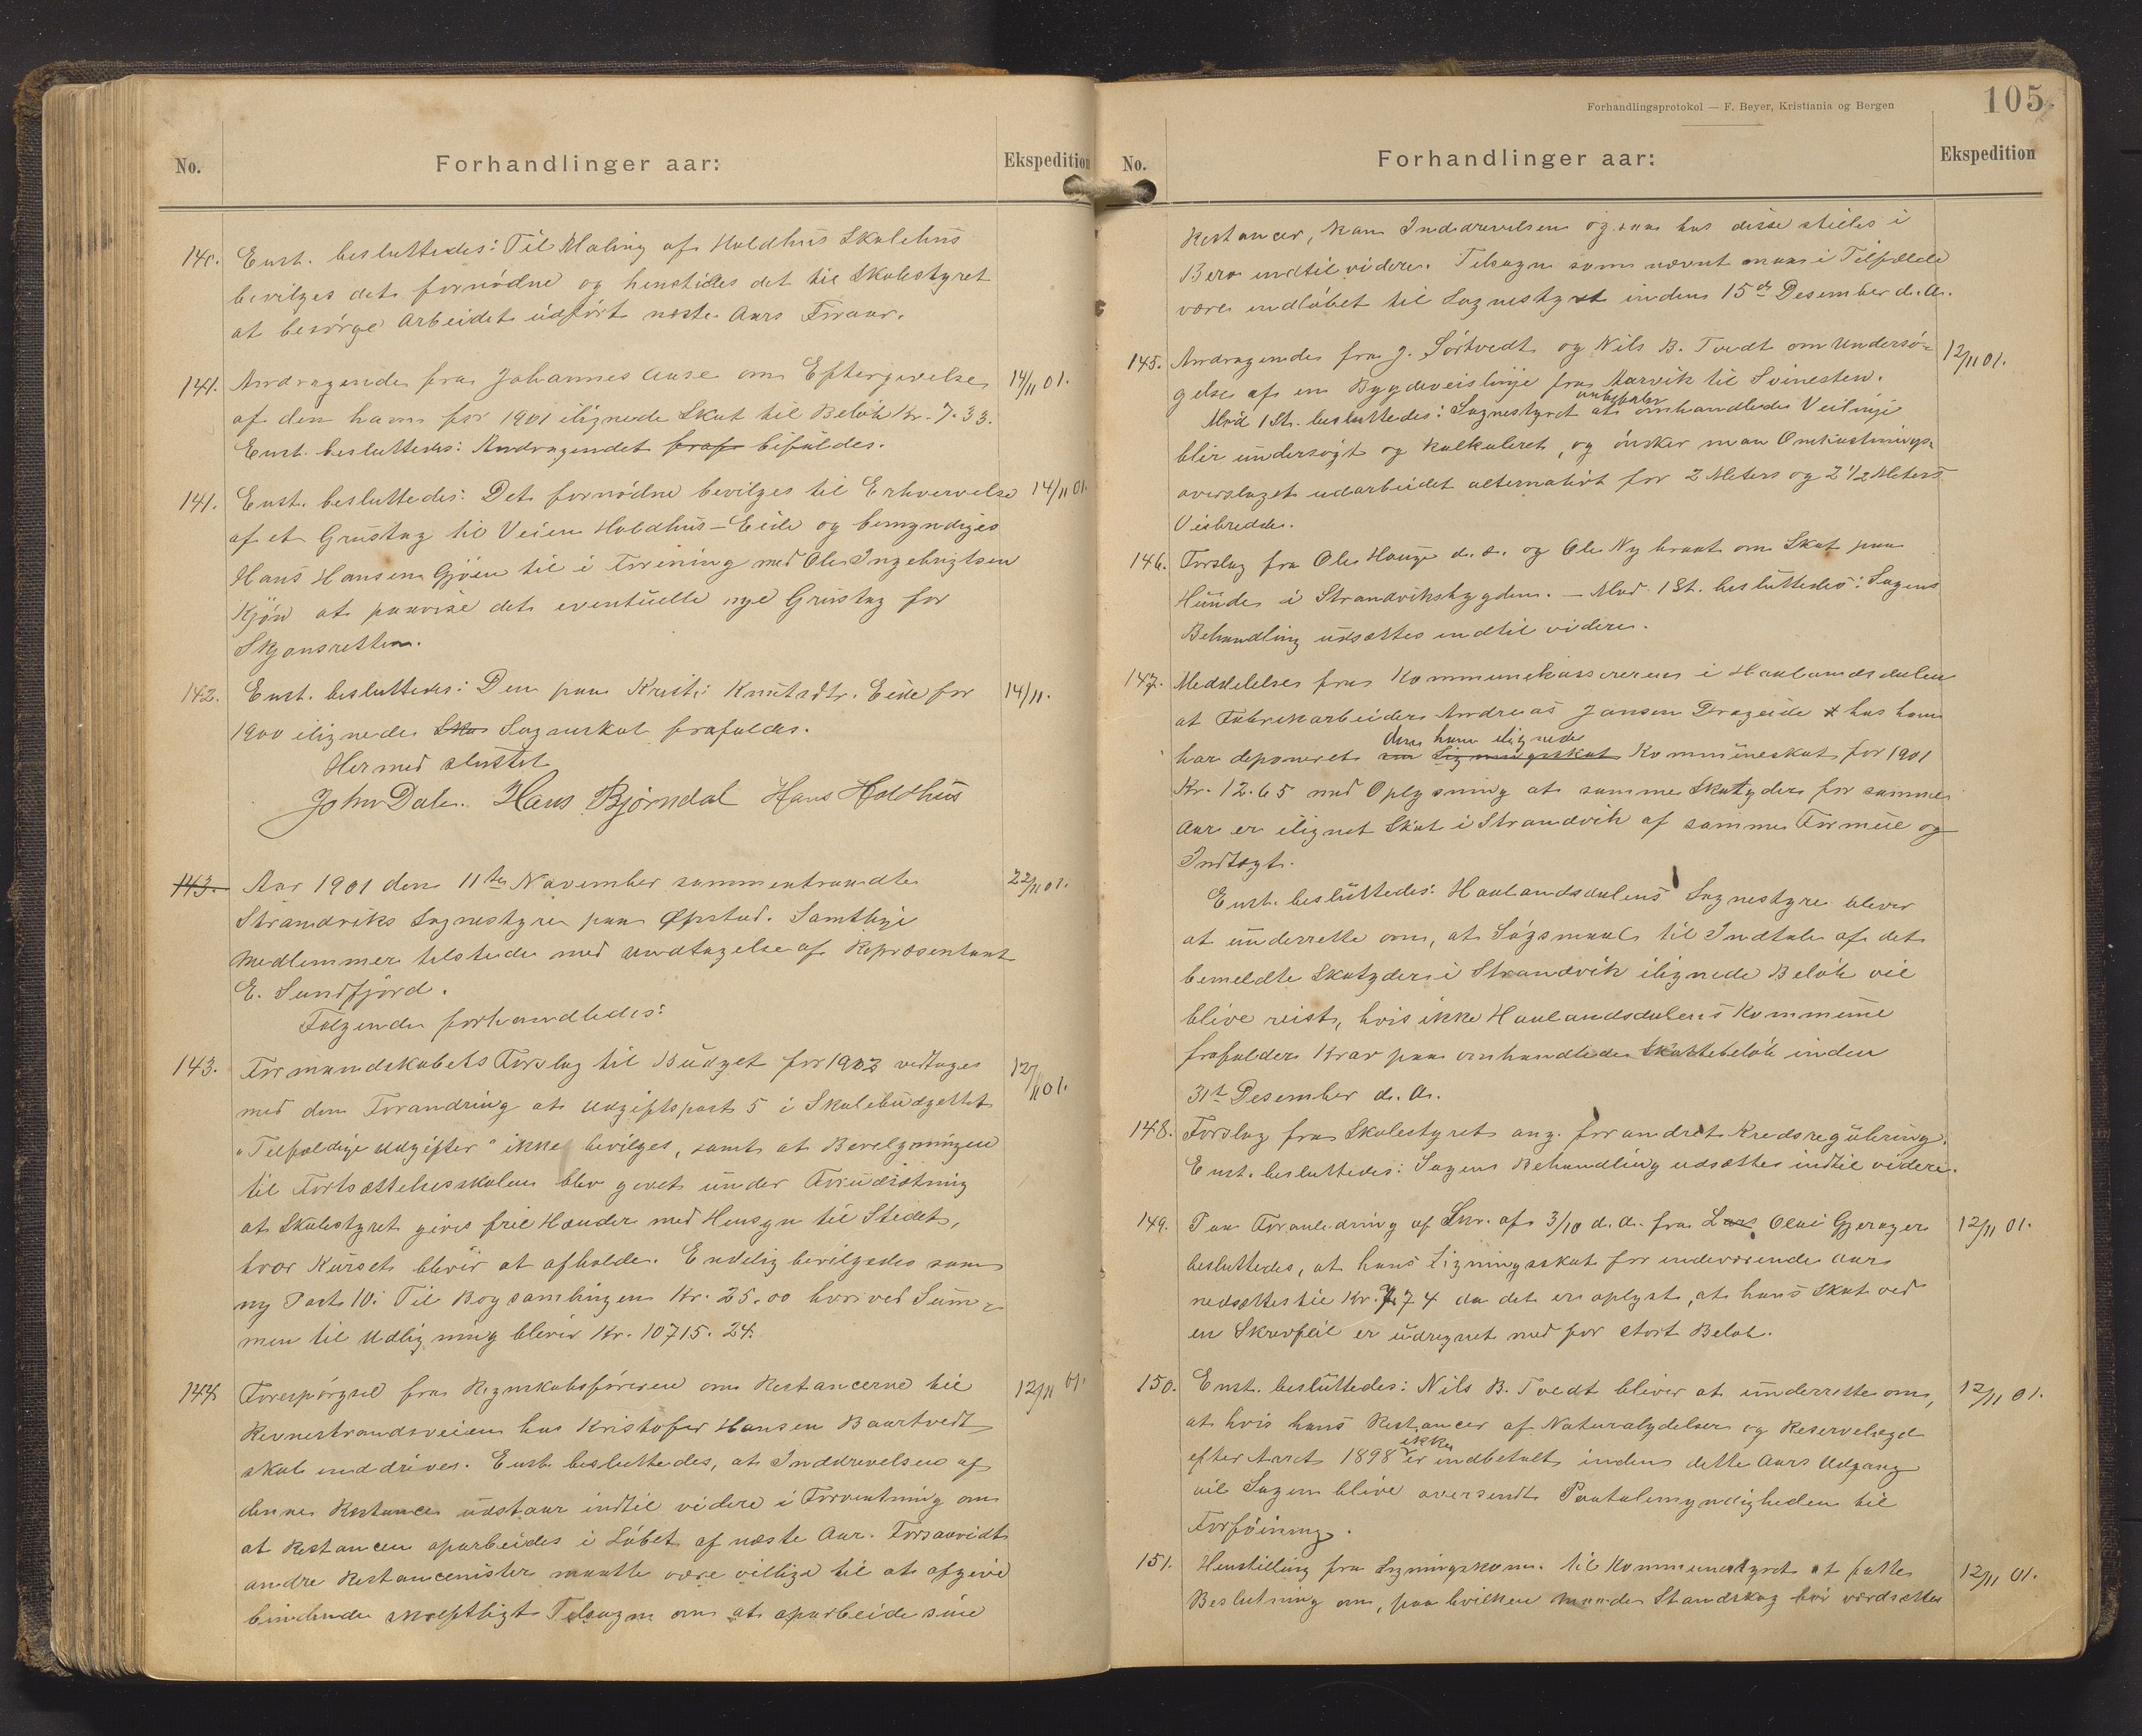 No.
Forhandlinger aar:
Ekspedition
140. Enst. besluttedes: Til Maling af Holdhus Skolehus
bevilges det fornødne og henstilles det til Skolestyret
at besørge Arbeidet udført næste Aars Foraar.
141. Andragende fra Johannes Aase om Eftergivelse 14/11 01.
af den ham for 1901 ilignede Skat til Beløb Kr. 7.33.
Enst. besluttedes: Andragendet fraf bifaldes.
141. Enst. besluttedes: Det fornødne bevilges til Erhvervelse 14/11 01.
af et Grustag til Veien Holdhus-Eide og bemyndiges
Hans Hansen Gjøen til i Forening med Ole Ingebrigtsen
Kjøn at paavise det eventuelle nye Grustag for
Skjønsretten.
142. Enst. besluttedes: Den paa Kristi Knutsdtr. Eide for 14/11.
1900 ilignede Ska Sogneskat frafaldes.
Hermed sluttet
John Dale. Hans Bjørndal Hans Holdhus
143. Aar 1901 den 11te November sammentraadte 22/11 01.
Strandviks Sognestyre paa Øpstad. Samtlige
Medlemmer tilstede med Undtagelse af Repræsentant
E. Sundfjord.
Følgende forhandledes:
143. Formandskabets Forslag til Budget for 1902 vedtages 12/11 01.
med den Forandring at Udgiftspost 5 i Skolebudgettet
"Tilfældige Udgifter" ikke bevilges, samt at Bevilgningen
til Fortsættelsesskolen blev givet under Forudsætning
at Skolestyret gives frie Hænder med Hensyn til Stedet,
hvor Kurset bliver at afholde. Endelig bevilgedes som
ny Post 10: Til Bogsamlingen Kr. 25.00 hvorved Sum-
men til Udligning bliver Kr. 10715.24.
144. Forespørgsel fra Regnskabsføreren om Restancerne til 12/11 01.
Revnestrandsveien hos Kristofer Hansen Baartvedt
skal inddrives. Enst. besluttedes, at Inddrivelsen af
denne Restance udstaar indtil videre i Forventning om
at Restancen oparbeides i Løbet af næste Aar. Forsaavidt
andre Restancenister maatte være villige til at afgive
bindende skriftligt Tilsagn om at oparbeide sine
Forhandlingsprotokol — F. Beyer, Kristiania og Bergen
105
No.
Forhandlinger aar:
Ekspedition
Restancer, kan Inddrivelsen ogsaa hos disse stilles i
Bero indtil videre. Tilsagn som nævnt maa i Tilfælde
være indløbet til Sognestyret inden 15de Desember d.A.
145. Andragende fra J. Sørtvedt og Nils B. Tvedt om Undersø- 12/11 01.
gelse af en Bygdeveislinje fra Marvik til Svinesten.
anbefaler
Mod 1 St. besluttedes: Sognestyret at omhandlede Veilinje
blir undersøgt og kalkuleret, og ønsker man Omkostnings-
overslaget udarbeidet alternativt for 2 Meters og 2 1/2 Meters
Veibredde.
146. Forslag fra Ole Hauge d.æ. og Ole Nybraat om Skat paa
Hunde i Strandviksbygden. — Mod 1 St. besluttedes: Sagens
Behandling udsættes indtil videre.
147. Meddelelse fra Kommunekassereren i Haalandsdalen
at Fabrikarbeider Andreas Jansen Drageide hos ham
den ham ilignede
har deponeret sin Ligningsskat Kommuneskat for 1901
Kr. 12.65 med Oplysning at samme Skatyder for samme
Aar er ilignet Skat i Strandvik af samme Formue og
Indtægt.
Enst. besluttedes: Haalandsdalens Sognestyre bliver
at underrette om, at Søgsmaal til Indtale af det
bemeldte Skatyder i Strandvik ilignede Beløb vil
blive reist, hvis ikke Haalandsdalens Kommune
frafalder Krav paa omhandlede Skattebeløb inden
31te Desember d.A.
148. Forslag fra Skolestyret ang. forandret Kredsregulering.
Enst. besluttedes: Sagens Behandling udsættes indtil videre.
149. Paa Foranledning af Skr. af 3/10 d.A. fra Lars Olai Gjerager 12/11 01.
besluttedes, at hans Ligningsskat for indeværende Aar
nedsættes til Kr. 7.74 da det er oplyst, at hans Skat ved
en Skrivfeil er udregnet med for stort Beløb.
150. Enst. besluttedes: Nils B. Tvedt bliver at underrette om, 12/11 01.
at hvis hans Restancer af Naturalydelser og Reservelægd
ikke
efter Aaret 1898 er indbetalt inden dette Aars Udgang
vil Sagen blive oversendt Paatalemyndigheden til
Forføining.
151. Henstilling fra Ligningskom. til Kommunestyret at fatte 12/11 01.
Beslutning om, paa hvilken Maade Standskog bør værdsættes